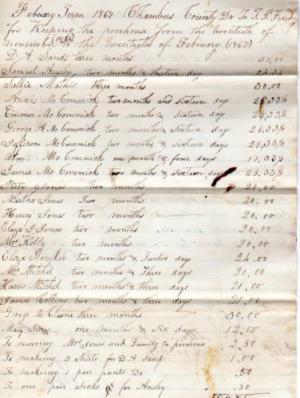 Febuary Term 1867 Chambers County Dr To J. F.
for Keeping the poorhouse from the twentieth of
November (1866) to the twentieth of Febuary (1867)
D. A. Sands three months 30,00
Samuel Ansley two months & thirteen day
Sallie Mathis three months 30.00
Annis Mc Cormick two months and sixteen days 25,33⅓
Mc Cormick two months & sixteen days 25,33⅓
George A Mc Cormick two months & sixteen days 25,33⅓
Jefferson Mc Cormick two months & sixteen days 25.33⅓
Mc Cormick one month & four days 11,33⅓
James Mc Cormick two months & sixteen days 25,33⅓
Jones two months 20,00
Martha Jones two months 20.00
Henry Jones two months 20.00
Eliza Jones two months 20.00
Mr Kelly two months 20,00
Eliza two months & Twelve days 24.00
Mr Mitchel two months & Three days 21,00
Mitchel two months & three days 21.00
James Collins two months & three days 21,00
George Mc three months 30.00
Mary Jones one month & six days 12,00
To moving Mrs Jones and family to poorhouse 2.50
To making 2 Shirts for D. A 1.00
To making 1 pair pants Do .50
To one pair socks for Ansley .50